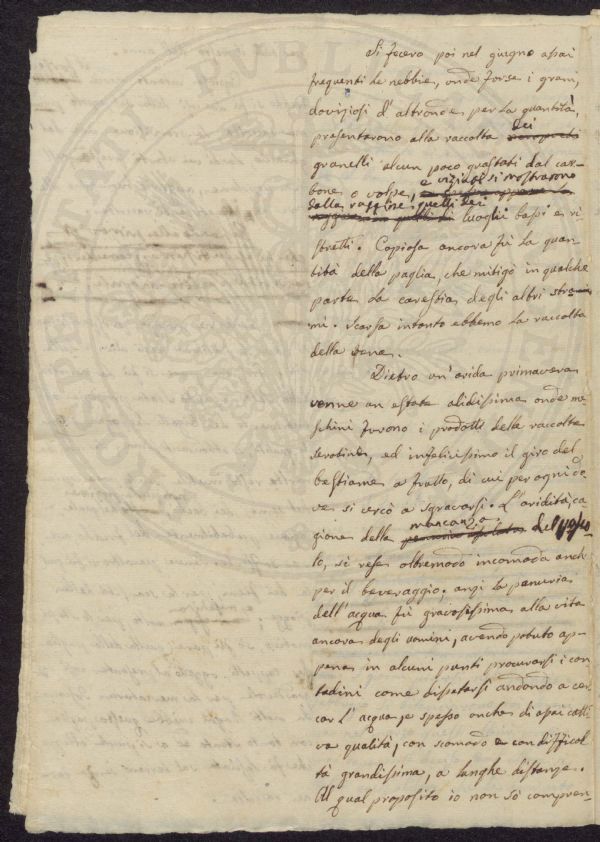 Si fecero poi nel giugno assai
frequenti le nebbie, onde forse i grani,
doviziosi d'altronde per la quantità,
presentarono alla raccolta dei
granelli alcun poco guastati dal car-
bone o volpe, e viziati si mostrarono
dalla ruggine quelli dei luoghi bassi e ri-
stretti. Copiosa ancora fù la quan-
tità della paglia, che mitigò in qualche
parte la carestia degli altri stra-
mi. Scarsa intanto ebbemo la raccolta
della vena.
Dietro un'arida primavera
venne un estate alidissima onde me-
schini furono i prodotti delle raccolte
serotine, ed infelicissimo il giro del
bestiame a frutto, di cui per ogni do-
ve si cercò a sgravarsi. L'aridità, ca-
gione della mancanza del pasco-
lo, si rese oltremodo incomoda anche
per il beveraggio; anzi la penuria
dell'acqua fù gravosissima alla vita
ancora degli uomini, avendo potuto ap-
pena in alcuni punti procurarsi i con-
tadini come dissetarsi andando a cer-
car l'acqua, e spesso anche di assai catti-
va qualità, con scomodo e con difficol-
tà grandissima, a lunghe distanze.
Al qual proposito io non sò compren-